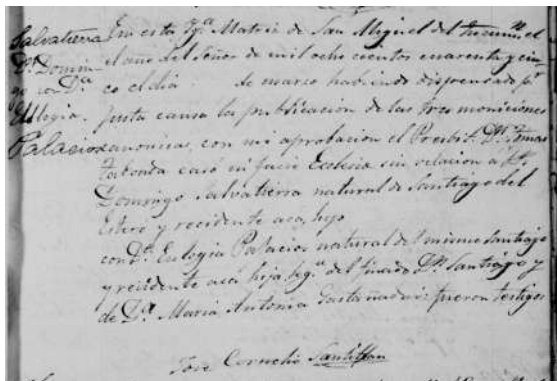 Salvatierra
Dn. Domin-
go con Da.
Eulogia.
Palacios
En esta Yga. Matriz de San Miguel del Tucumn. el
el año del Señor de mil ocho cientos cuarenta y cin-
co el dia de marzo habiendo dispensado pr.
justa causa la publicacion de las tres moniciones
canonicas, con mi aprobacion el Presbit. Dn. Tomas
Taboada casó in facie Eclesia sin velacion a Dn.
Domingo Salvatierra natural de Santiago del
Estero y recidente acá, hijo
con Da. Eulogia Palacios natural del mismo Santiago
y recidente acá hija lega. del finado Dn. Santiago y
de Da. Maria Antonia fueron testigos
Jose Cornelio Santillan